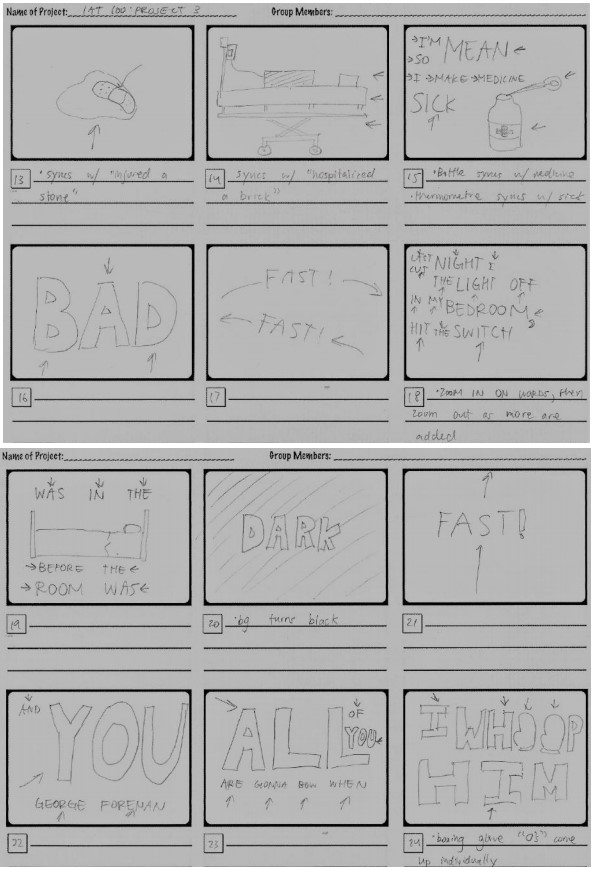 Name of Project: IAT 100: PROJECT 3 Group Members:
13 • syncs w/ "injured a
stone"
I'M MEAN
SO
I MAKE MEDICINE
SICK
14 syncs w/ "hospitalized
a brick"
15 • Bottle syncs w/ medicine
• thermometre syncs w/ sick
BAD
16
FAST!
FAST!
17
LAST NIGHT I
CUT THE LIGHT OFF
IN MY BEDROOM,
HIT THE SWITCH
18 • ZOOM IN ON WORDS, then
zoom out as more are
added
Name of Project: Group Members:
WAS IN THE
BEFORE THE
ROOM WAS
19
DARK
20 • bg turns black
FAST!
21
AND YOU
GEORGE FOREMAN
22
ALL OF
YOU
ARE GONNA BOW WHEN
23
I WHOOP
HIM
24 • boxing glove "O's" come
up individually